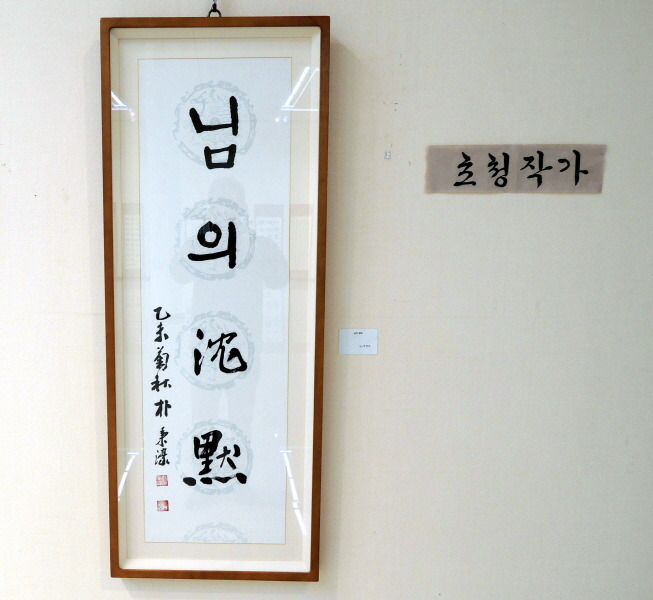 님의沈默
乙未菊秋朴秉濠
초청작가